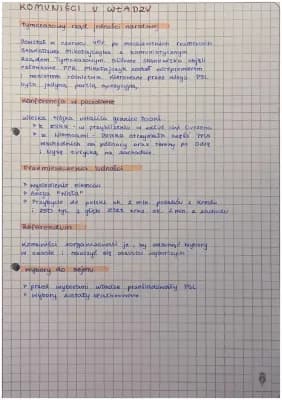 KOMUNIŚCI U WŁADZY
Tymczasowy rząd jedności narodowej
Powstał w czerwcu 45r. po moskiewskich rozmowach
Stanisława Mikołajczyka z komunistycznym
Rządem Tymczasowym. Główne stanowiska objęli
członkowie PPR. Mikołajczyk został wicepremierem
i ministrem rolnictwa. Kierowane przez niego PSL
było jedyną partią opozycyjną.
Konferencja w Poczdamie
Wielka trójka ustaliła granice Polski
z ZSRR - w przybliżeniu wzdłuż linii Curzona
z Niemcami - Polska otrzymała część Prus
Wschodnich na północy oraz tereny po Odrę
i Nysę Łużycką na zachodzie
Przemieszczenia ludności
wysiedlenie Niemców
Akcja "Wisła"
Przybycie do Polski ok. 2 mln. Polaków z Kresów
i 250 tys. z głębi ZSRR oraz ok. 2 mln. z zachodu
Referendum
Komuniści zorganizowali je, by odsunąć wybory
w czasie i nauczyć się oszustw wyborczych
Wybory do sejmu
przed wyborami władze prześladowały PSL
wybory zostały sfałszowane